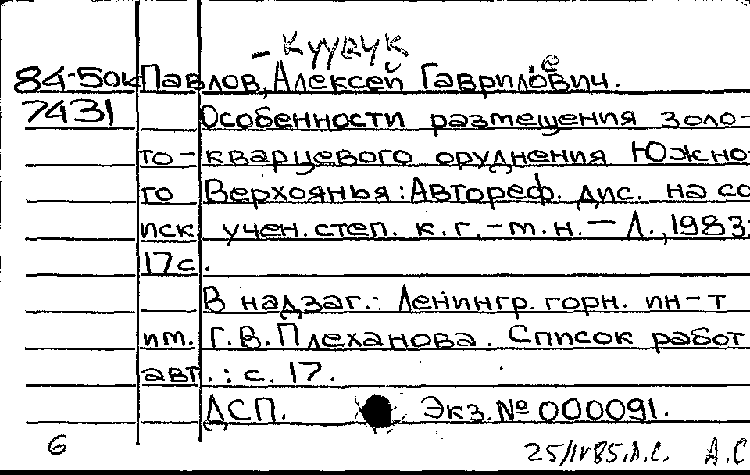 - Куучук
84-50к Павлов, Алексей Гаврилович.
7431 Особенности размещения золо-
то-кварцевого оруднения Южно
го Верхоянья: Автореф. дис. на со
иск учен. степ. к.г.-м.н. — Л., 1983.
17с.
В надзаг.: Ленингр. горн. ин-т
им. Г.В. Плеханова. Список работ
авт.: с. 17.
ДСП. Экз. № 000091.
6 25/IV85. А.С. А.С